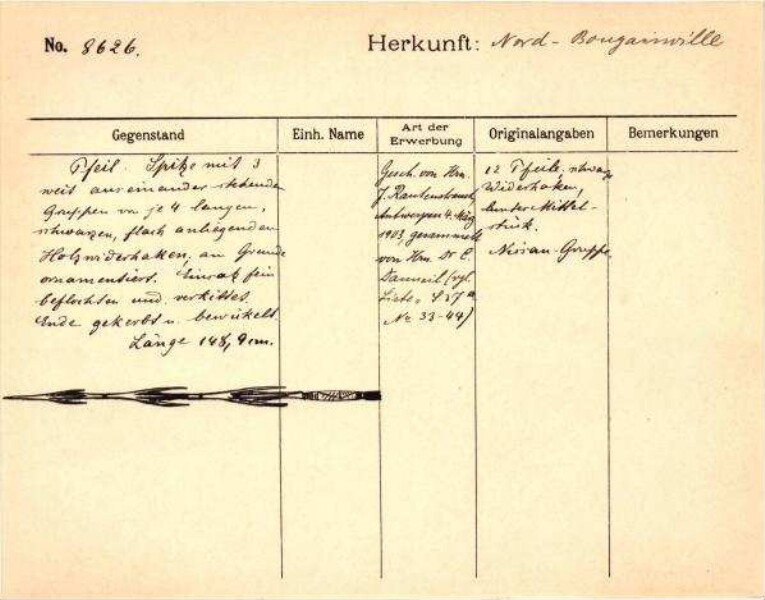 No. 8626.
Herkunft: Nord-Bougainville
Gegenstand
Einh. Name
Art der Erwerbung
Originalangaben
Bemerkungen
Pfeil. Spitze mit 3
weit auseinander stehenden
Gruppen von je 4 langen,
schwarzen, flach anliegenden
Holzwiderhaken, am Grunde
ornamentiert. Einsatz fein
beflochten und verkittet.
Ende gekerbt u. bewickelt.
Länge 148,9 cm.
Gesch. von Hrn.
J. Rautenstrauch,
Antwerpen 4. März
1903, gesammelt
von Hrn. Dr C.
Danneil (vgl.
Liste
No 33-44)
12 Pfeile, schwarze
Widerhaken,
bunter Mittel-
stück.
Nissan-Gruppe.